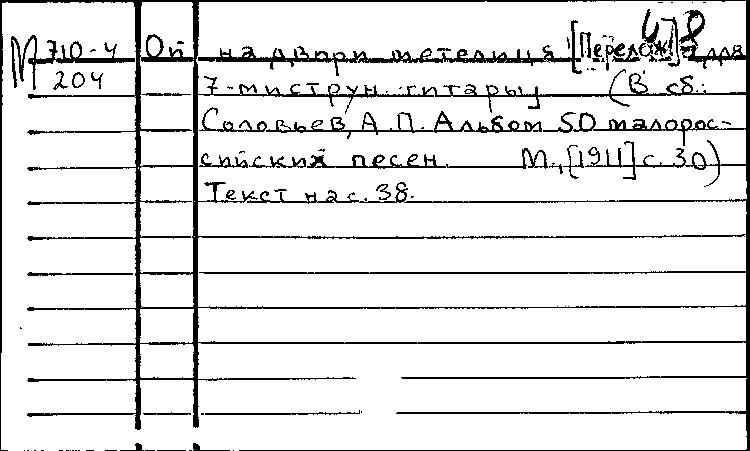 М 710-4 Оп на двори метелиця [Перелож.] для
204 7-миструн. гитары (В сб.:
Соловьев, А.П. Альбом 50 малорос-
сийских песен. М., [1911] с. 30)
Текст на с. 38.